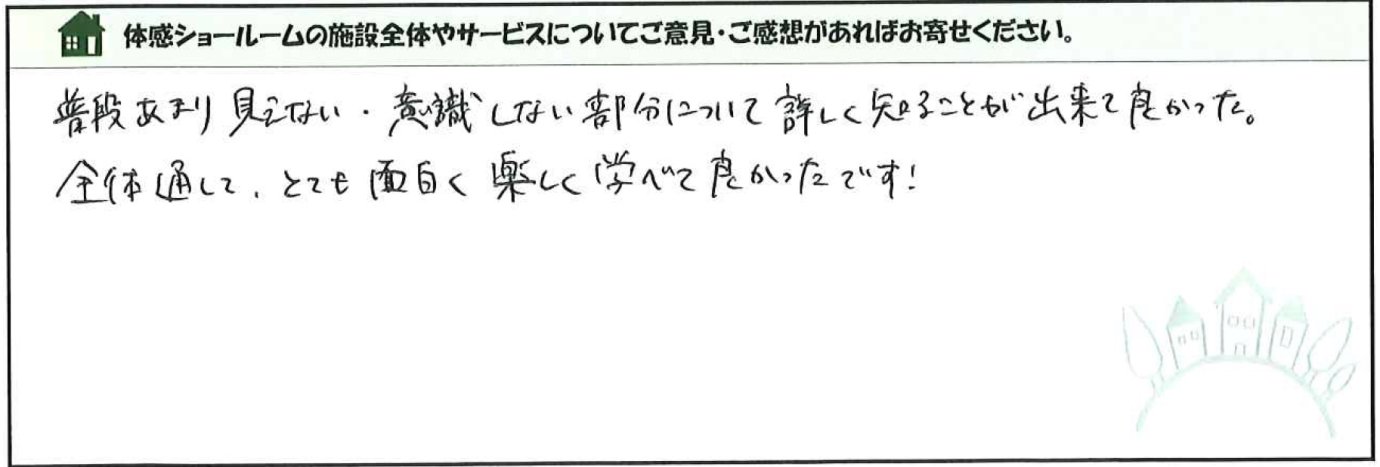 体感ショールームの施設全体やサービスについてご意見・ご感想があればお寄せください。
普段あまり見えない・意識しない部分について詳しく知ることが出来て良かった。
全体通して、とても面白く楽しく学べて良かったです!